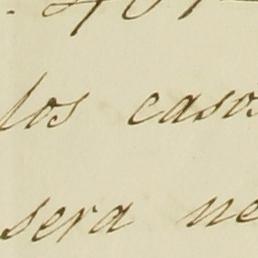 los casos
sera ne